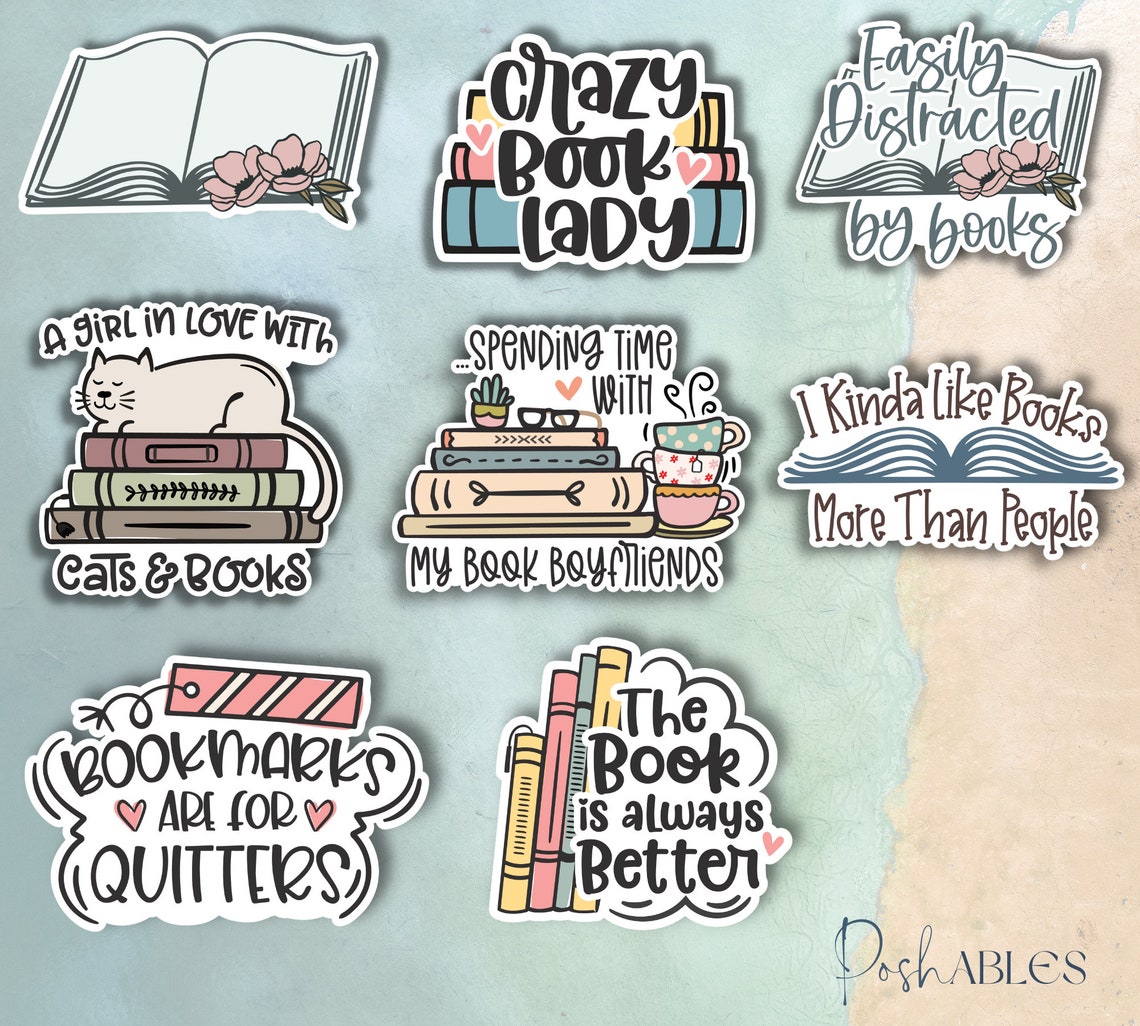 Crazy
Book
Lady
Easily
Distracted
by books
A GiRL iN LOVE WiTH
CATS & BOOKS
...SPENDING TIME
WITH
MY BOOK BOYFRIENDS
I Kinda Like Books
More Than People
BOOKMARKS
ARE FOR
QUITTERS
The
Book
is always
Better
PoshABLES